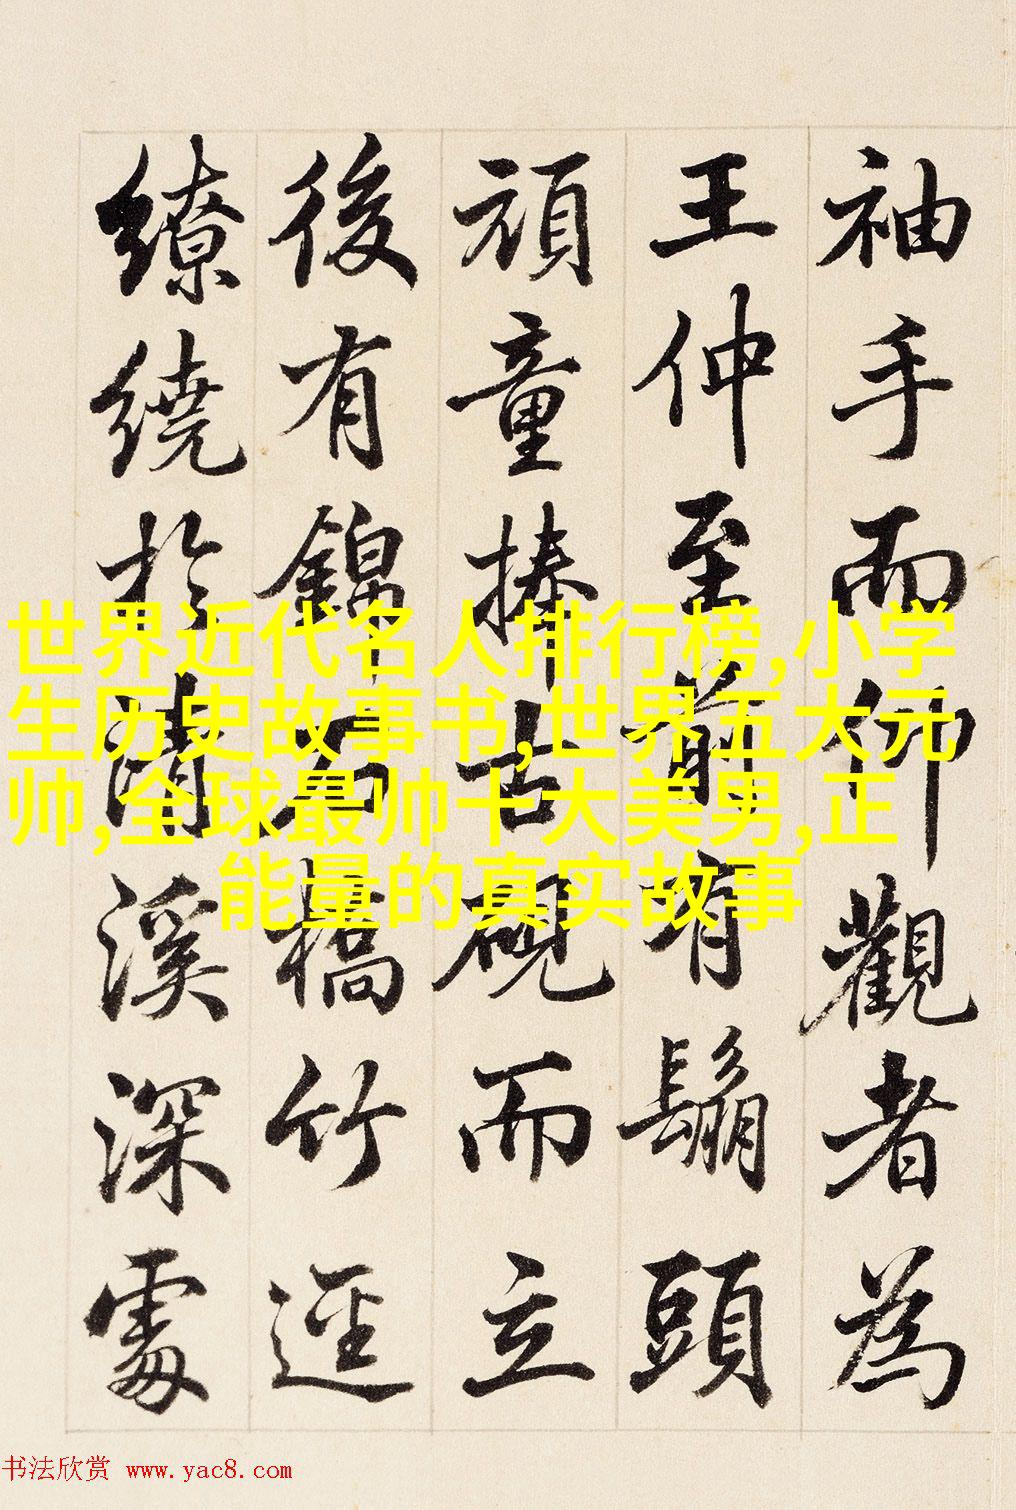 袖手而仰觀者為
王仲至前有鬅頭
頑童捧古硯而立
後有錦石橋竹逕
繚繞於清溪深處
世界近代名人排行榜,小学
生历史故事书,世界五大元
帅,全球最帅十大美男,正
能量的真实故事
书法欣赏 www.yac8.com